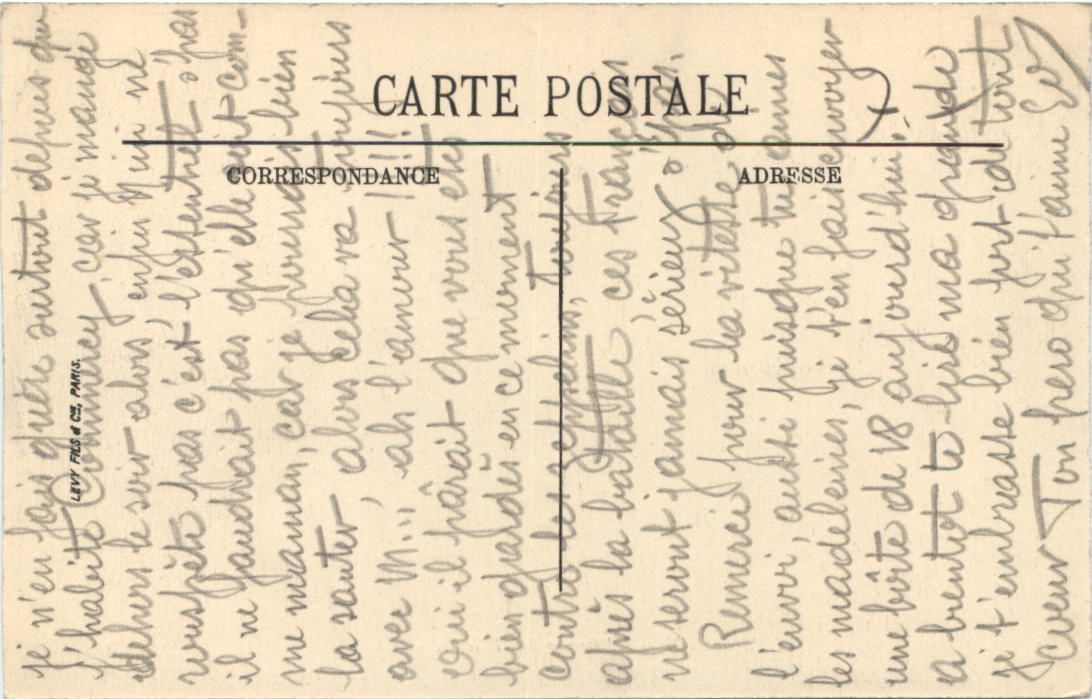 CARTE POSTALE
CORRESPONDANCE
ADRESSE
LEVY FILS & Cie, PARIS.
7
je n'en fais guère surtout depuis que
j'habite Commercy car je mange
dehors le soir alors, enfin qui ne
rouspète pas c'est l'essentiel, pas
il ne faudrait pas qu'elle com-
me maman, car je pourrais bien
la sauter, alors cela va toujours
avec M... ah l'amour !!!!
Oui il paraît que vous êtes
bien gardés en ce moment
contre les zeppelins, toujours
après la bataille, ces Français
ne seront jamais sérieux
Remercie pour la vitesse de
l'envoi, aussi puisque tu aimes
les madeleines, je t'en fais envoyer
une boîte de 18 aujourd'hui.
a bientôt te lire ma grande
je t'embrasse bien fort de tout
coeur Ton pero qui t'aime